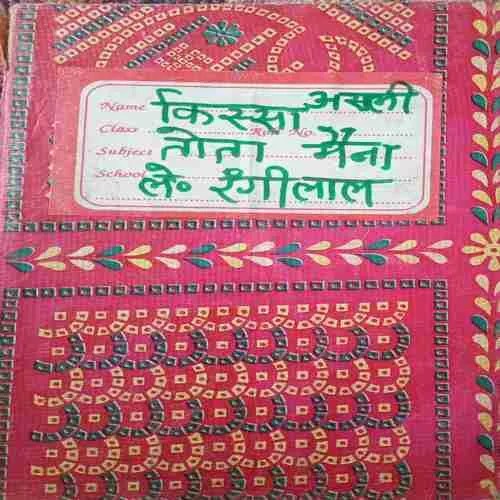 Name किस्सा असली
Class Roll No.
Subject तोता मैना
School ले० रंगीलाल